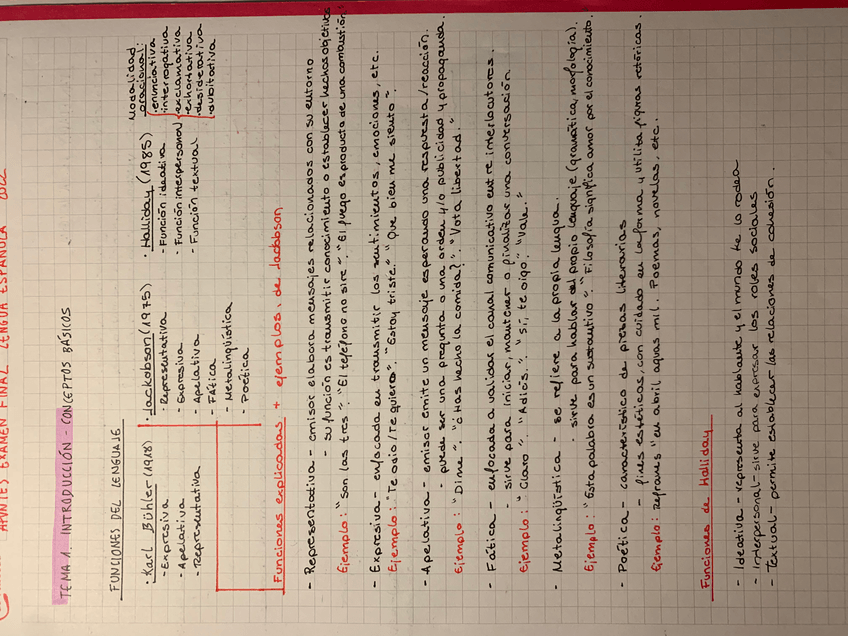 APUNTES EXAMEN FINAL LENGUA ESPAÑOLA 2022
TEMA 1. INTRODUCCIÓN - CONCEPTOS BÁSICOS
FUNCIONES DEL LENGUAJE
· Karl Bühler (1918)
- Expresiva
- Apelativa
- Representativa
· Jackobson (1975)
- Representativa
- Expresiva
- Apelativa
- Fática
- Metalingüística
- Poética
· Halliday (1985)
- Función ideativa
- Función interpersonal
- Función textual
Modalidad
oracional:
· enunciativa
· interrogativa
exclamativa
exhortativa
desiderativa
dubitativa
Funciones explicadas + ejemplos, de Jackobson
- Representativa - emisor elabora mensajes relacionados con su entorno
- su función es transmitir conocimiento o establecer hechos objetivos
Ejemplo: "Son las tres". "El teléfono no sirve". "El fuego es producto de una combustión."
- Expresiva - enfocada en transmitir los sentimientos, emociones, etc.
Ejemplo: "Te odio/Te quiero". "Estoy triste." "Que bien me siento".
- Apelativa - emisor emite un mensaje esperando una respuesta/reacción.
- puede ser una pregunta o una orden y/o publicidad y propaganda.
Ejemplo: "Dime". "¿Has hecho la comida?". "Vota libertad."
- Fática - enfocada a validar el canal comunicativo entre interlocutores.
- sirve para iniciar, mantener o finalizar una conversación
Ejemplo: "Claro". "Adiós." "Sí, te oigo" "Vale."
- Metalingüística - se refiere a la propia lengua.
- sirve para hablar del propio lenguaje (gramática, morfología).
Ejemplo: "Esta palabra es un sustantivo". "Filosofía significa amor por el conocimiento.
- Poética - característico de piezas literarias
- fines estéticos, con cuidado en la forma y utiliza figuras retóricas.
Ejemplo: Refranes "en abril aguas mil. Poemas, novelas, etc.
Funciones de Halliday
- Ideativa - representa al hablante y el mundo que lo rodea
- Interpersonal - sirve para expresar los roles sociales
- Textual - permite establecer las relaciones de cohesión.